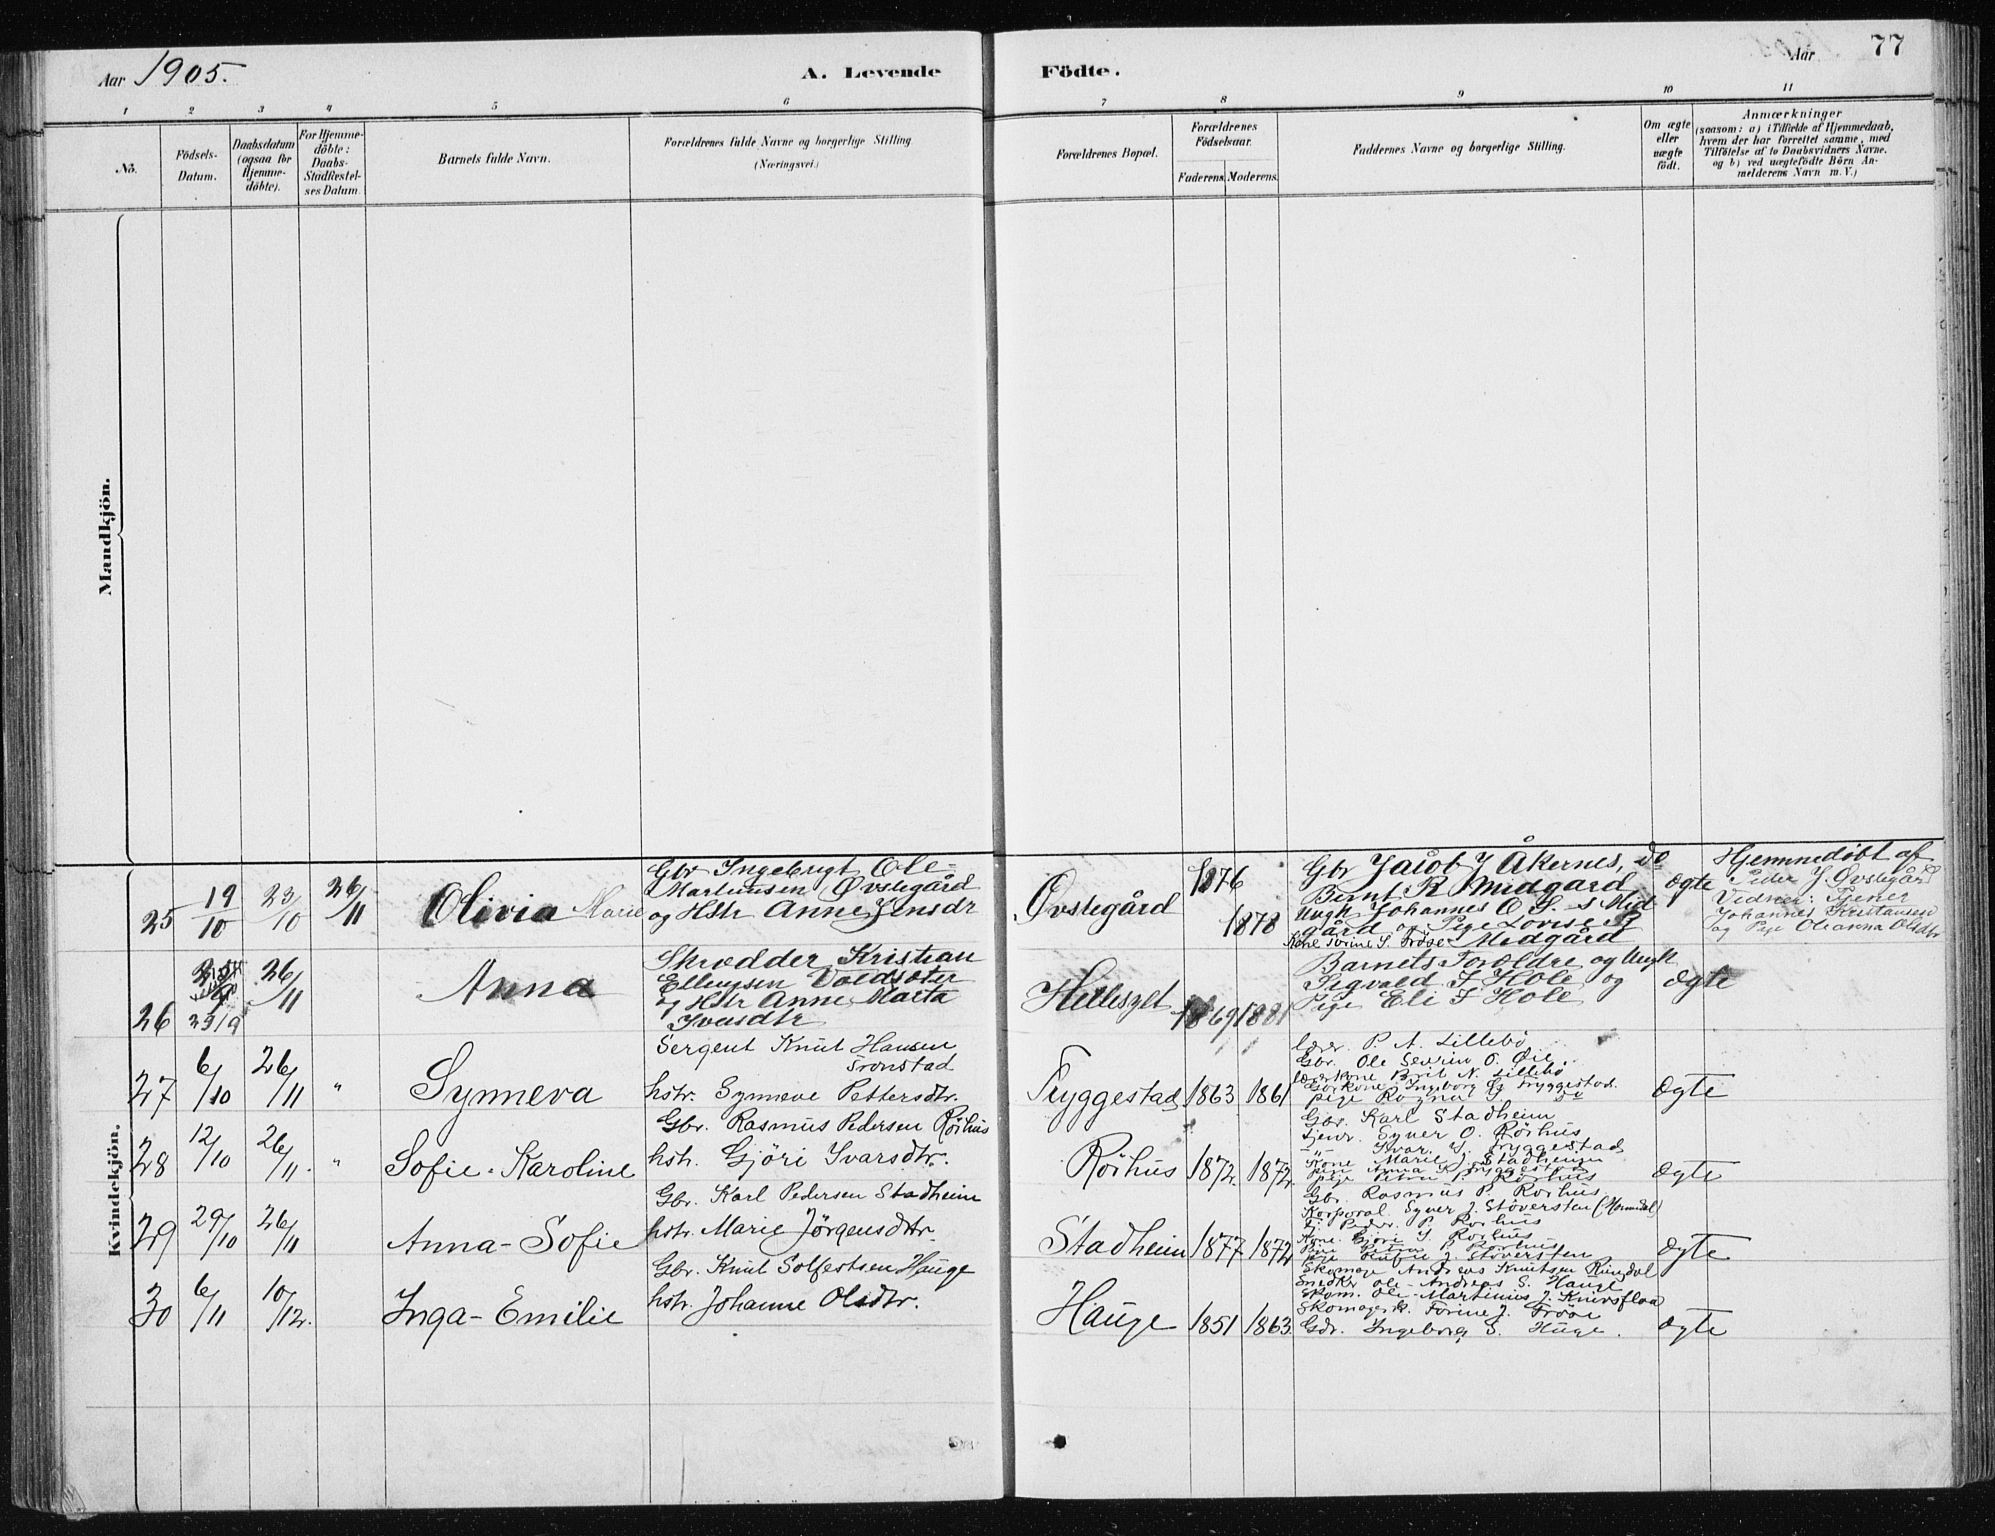 Aar 1905.
A. Levende Födte.
Aar
77
1 2 3 4 5 6 7 8 9 10 11
Nö.
Födsels-Datum.
Daabsdatum (ogsaa for Hjemme-döbte).
For Hjemme-döbte: Daabs-Stadfestel-ses Datum.
Barnets fulde Navn.
Forældrenes fulde Navne og borgerlige Stilling
(Næringsvei.)
Forældrenes Bopæl.
Forældrenes Födselsaar.
Faderens. Moderens.
Faddernes Navne og borgerlige Stilling.
Om ægte eller uægte födt.
Anmærkninger
(saasom: a) i Tilfælde af Hjemmedaab,
hvem der har forrettet samme, med
Tilföielse af to Daabsvidners Navne.
og b) ved uægtefödte Börn An-
melderens Navn m.V.)
Mandkjön.
Kvindekjön.
25 19/10 23/10 26/11 Olivia Marie
Gbr Ingebrigt Ole-
Martinusen Øvstegård
og Hstr Anne Jensdr
Øvstegård 1876 1878
Gbr Jacob J Åkernes, do
Bernt R Midgard
Ungk Johannes O S. s Mid
gård og Pige Lovise P
Midgård
ægte
Hjemmedöbt af
Peder J Øvstegård
Vidner: Tjener
Johannes Kristiansen
og Pige Oleanna Olsdtr
26 23/9 26/11 Anna
Skrædder Kristian
Ellingsen Voldsæter
og Hstr Anne Marta
Ivarsdtr
Hellesylt 1869 1881
Barnets Forældre og Ungk
Sigvald I Hole og
Pige Eli I Hole
ægte
27 6/10 26/11 " Synneva
Sergent Knut Hansen
Tronstad
hstr. Synneve Pettersdtr.
Tryggestad 1863 1861
lærer. P. A. Lillebö
Gbr. Ole Severin O. Øie.
lærerkone Brit N. Lillebö
Gbrkone Ingeborg Tryggestad.
pige Ragna do
ægte
28 12/10 26/11. " Sofie-Karoline
Gbr. Rasmus Pedersen Rörhus
hstr. Gjöri Ivarsdtr.
Rörhus 1872 1872.
Gbr. Karl Stadheim
Tjenr. Syver O. Rörhus
-"- Ivar J. Tryggestad
Kone Marie J. Stadheim
pige Anna K. Tryggestad
pige Petra P. Rörhus
ægte
29 29/10 26/11 Anna-Sofie
Gbr. Karl Pedersen Stadheim
hstr. Marie Jörgensdtr.
Stadheim 1877 1872
Gbr. Rasmus P. Rörhus
Korporal. Syver J. Stöversten (Hornindal)
Tj. Peder. P. Rörhus
Kone. Gjöri I. Rörhus
Pige Petra P. Rörhus
pige J. Stöversten
ægte
30 6/11 10/12. Inga-Emilie
Gbr. Knut Solfestsen Hauge
hstr. Johanne Olsdtr.
Hauge 1851 1863.
Skomager Andreas Knutsen Rindal
Snedker Ole-Andreas S. Hauge
Skom. Ole-Martinus J. Knivsflaa
Skomagerk. Torine J. Fröse
Gdr. Ingeborg S. Huge.
ægte